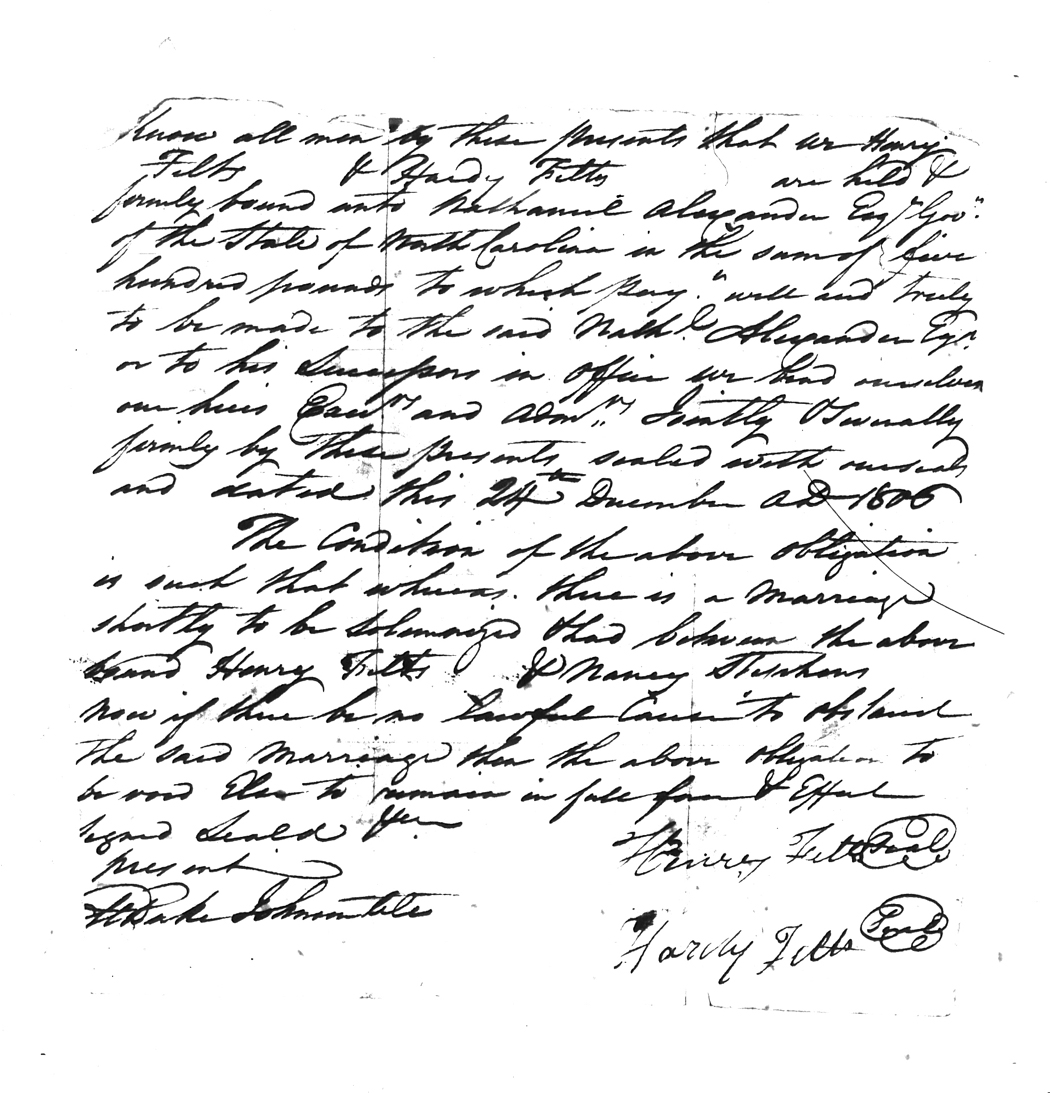 Know all men by these presents that we Henry
Felts & Hardy Felts are held &
firmly bound unto Nathaniel Alexander Esqr Govr.
of the State of North Carolina in the sum of five
hundred pounds to which pay.n well and truly
to be made to the said Nathl. Alexander Esqr.
or to his Successors in office we bind ourselves
our heirs Execrs and Admrs Jointly & Severally
firmly by these presents sealed with our seals
and dated this 24th December AD 1806
The Condition of the above obligation
is such that whereas there is a Marriage
shortly to be Solemnized & had between the above
bound Henry Felts & Nancy Stephens
Now if there be no lawful Cause to obstruct
the said Marriage then the above obligation to
be void Else to remain in full force & Effect
signed Seald &c
present
Henry Felts Seal
Johnson
Hardy Felts Seal